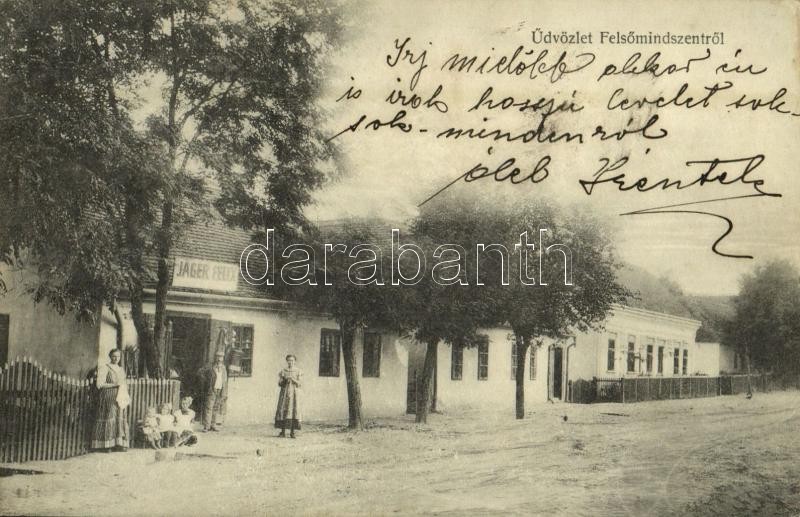 Üdvözlet Felsőmindszentről
Irj mielőbb akkor én
is irok hosszú levelet sok-
sok-mindenről
ölel
JÄGER FELIX
darabanth